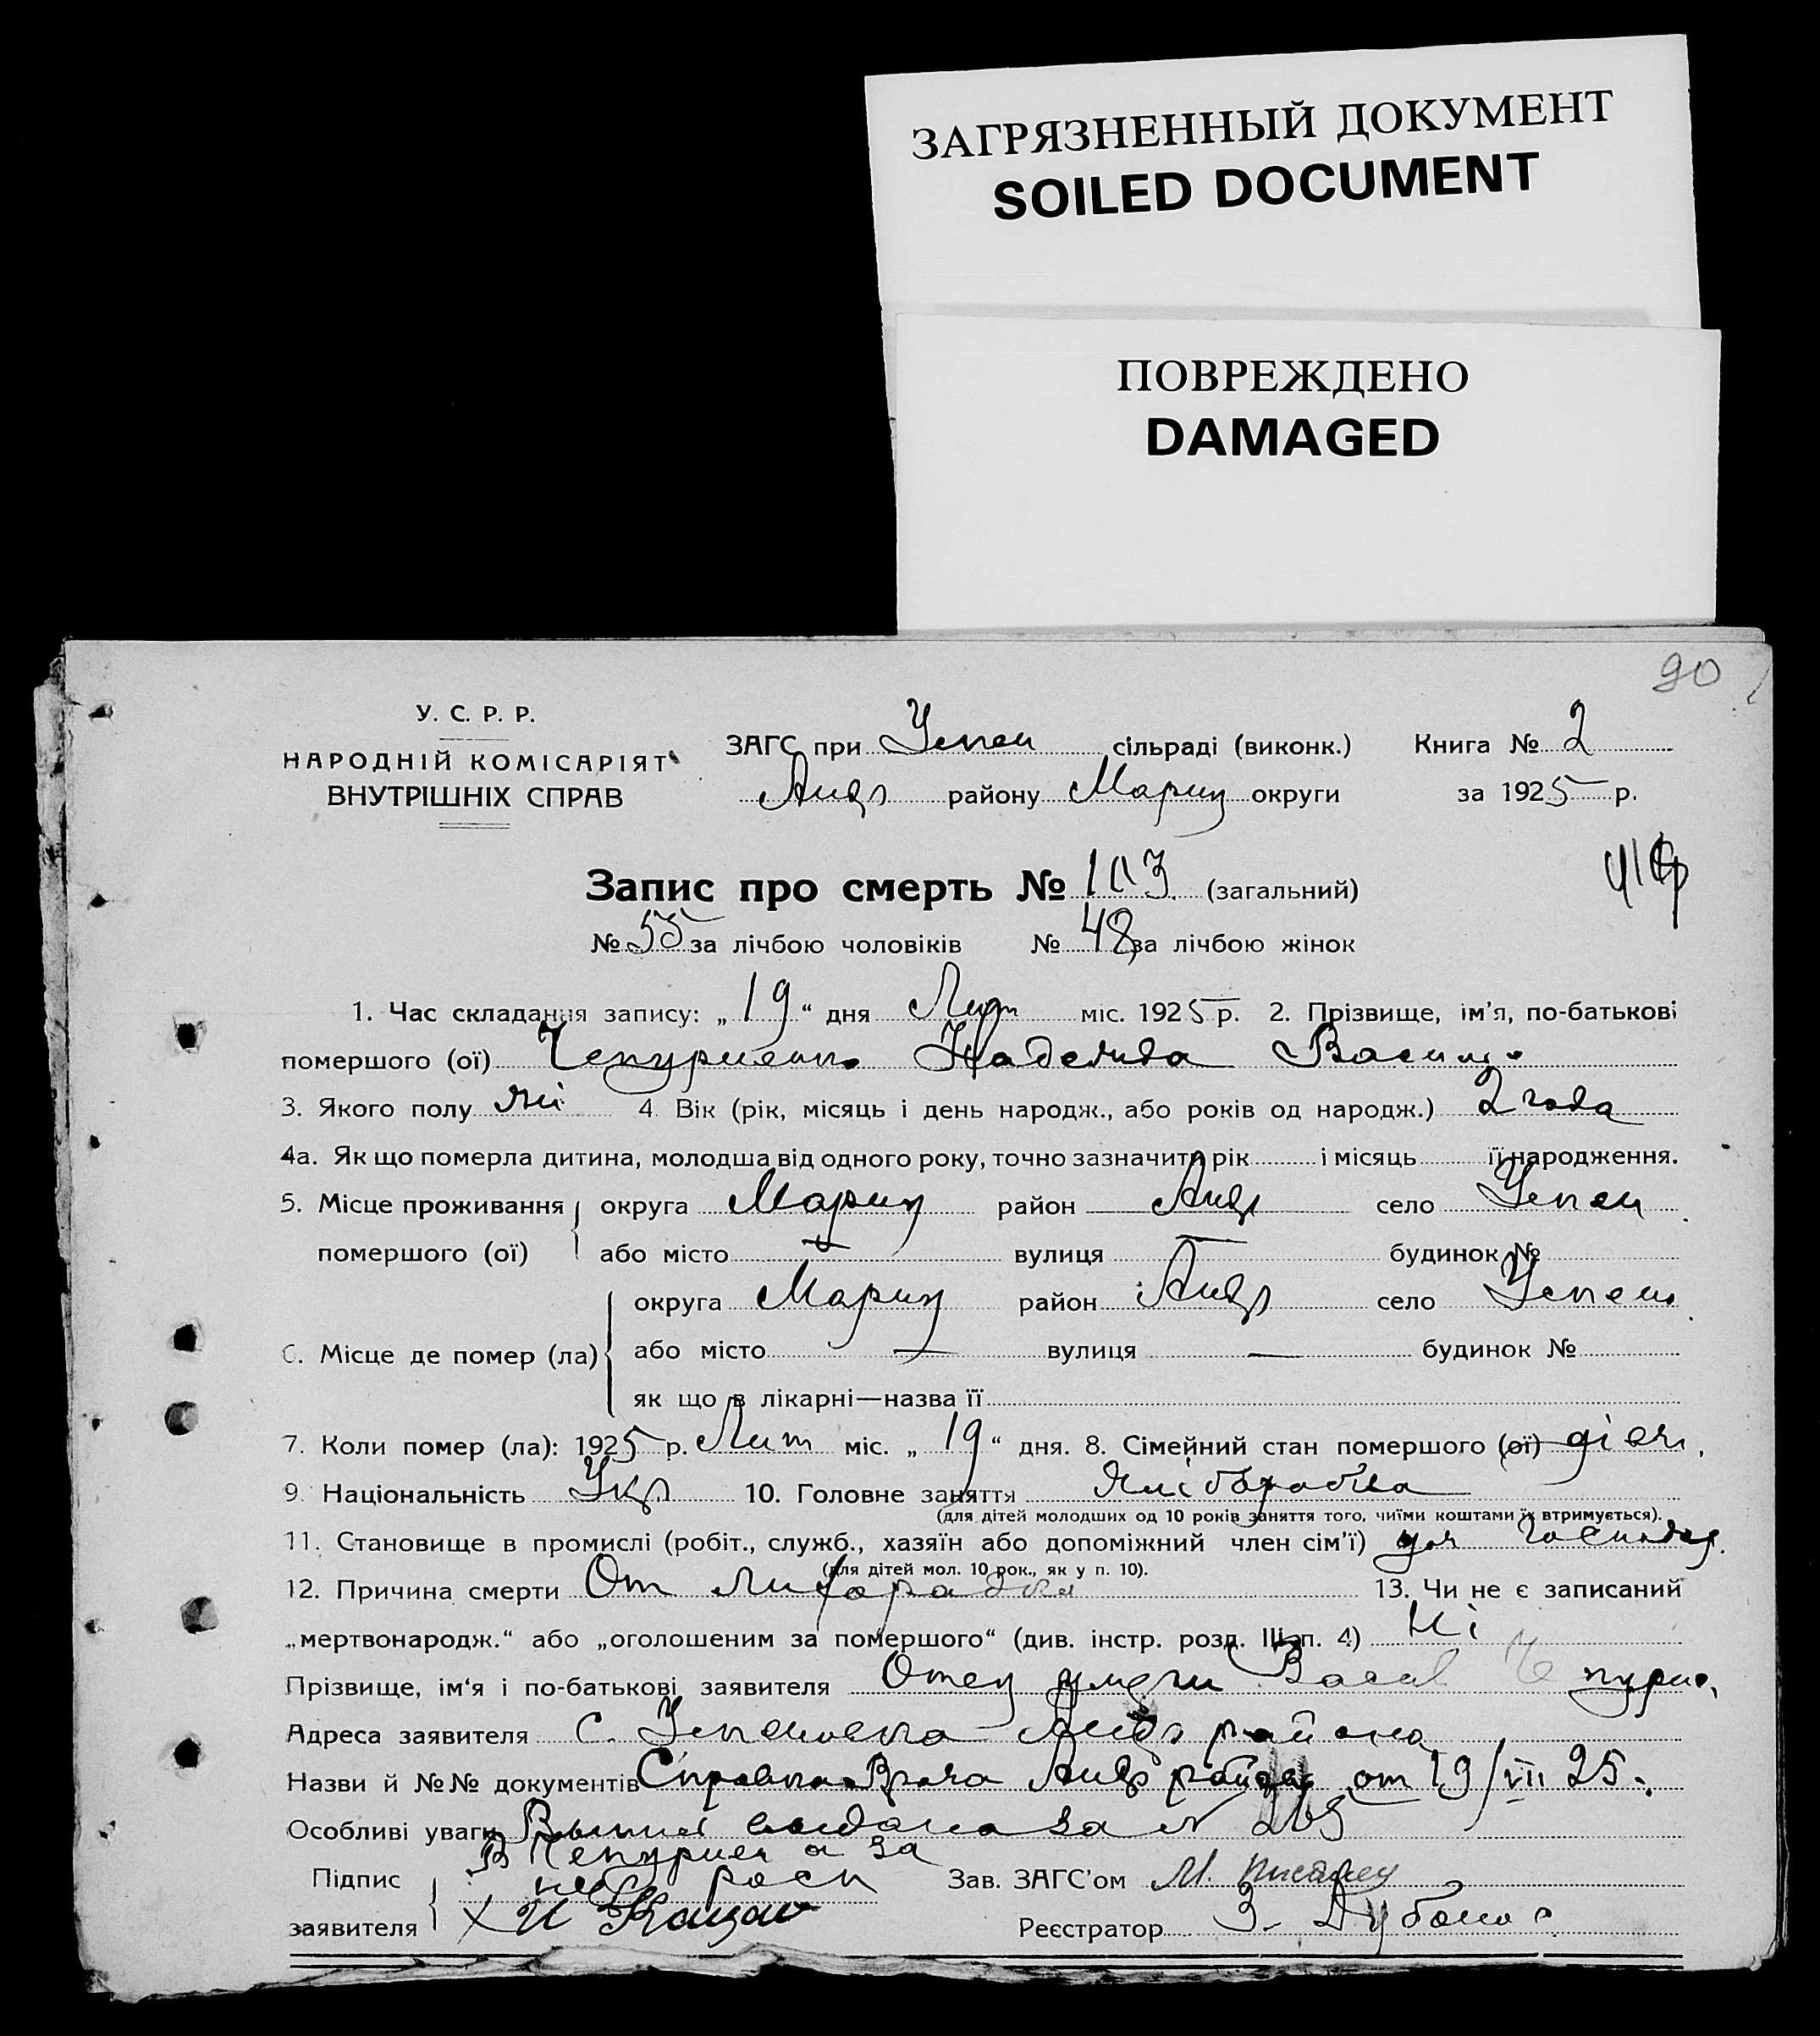 ЗАГРЯЗНЕННЫЙ ДОКУМЕНТ
SOILED DOCUMENT
ПОВРЕЖДЕНО
DAMAGED
90
У. С. Р. Р.
НАРОДНІЙ КОМІСАРІЯТ
ВНУТРІШНІХ СПРАВ
ЗАГС при Успен сільраді (виконк.) Книга № 2
Андр району Мариуп округи за 1925 р.
Запис про смерть № 103 (загальний)
№ 55 за лічбою чоловіків № 48 за лічбою жінок
1. Час складання запису: „19“ дня Лип міс. 1925 р. 2. Прізвище, ім'я, по-батькові
помершого (ої) Чепурненко Надежда Василь
3. Якого полу жі 4. Вік (рік, місяць і день народж., або років од народж.) 2 года
4а. Як що померла дитина, молодша від одного року, точно зазначити рік і місяць її народження.
5. Місце проживання округа Мариуп район Андр село Успен
помершого (ої) або місто — вулиця — будинок №
округа Мариуп район Андр село Успен
6. Місце де помер (ла) або місто — вулиця — будинок №
як що в лікарні—назва її
7. Коли помер (ла): 1925 р. Лип міс. „19“ дня. 8. Сімейний стан помершого (ої)
9. Національність Укр 10. Головне заняття Хліборобства
(для дітей молодших од 10 років заняття того, чиїми коштами їх втримується).
11. Становище в промислі (робіт., служб., хазяїн або допоміжний член сім'ї)
(для дітей мол. 10 рок., як у п. 10).
12. Причина смерти От лихорадки 13. Чи не є записаний
„мертвонародж.“ або „оголошеним за помершого“ (див. інстр. розд. III п. 4) Ні
Прізвище, ім'я і по-батькові заявителя Отец Васил Чепурн
Адреса заявителя С. Успеновка Андр района
Назви й №№ документів Справка Врача Андр района от 19/VII 25.
Особливі уваги выдана за № 265
В Чепурнен а за
Підпис
заявителя
неб росп
х И
Зав. ЗАГС'ом М. Писарец
Реєстратор З. Дубона